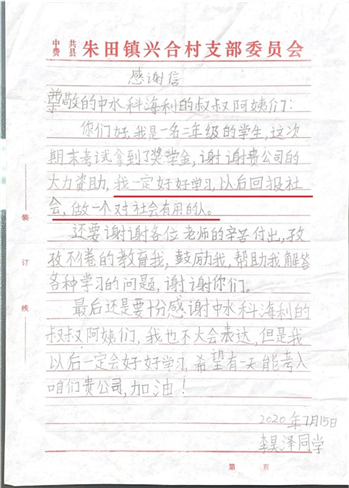 中共
费县 朱田镇兴合村支部委员会
感谢信
尊敬的中水科海利的叔叔阿姨们:
你们好,我是一名二年级的学生,这次
期末考试拿到了奖学金,谢谢贵公司的
大力资助,我一定好好学习,以后回报社
会,做一个对社会有用的人。
还要谢谢各位老师的辛苦付出,孜
孜不倦的教育我,鼓励我,帮助我解答
各种学习的问题,谢谢你们。
最后还是要十分感谢中水科海利的
叔叔阿姨们,我也不大会表达,但是我
以后一定会好好学习,希望有一天能考入
咱们贵公司,加油!
2020年7月15日
李昊泽同学
装
订
线
第 页